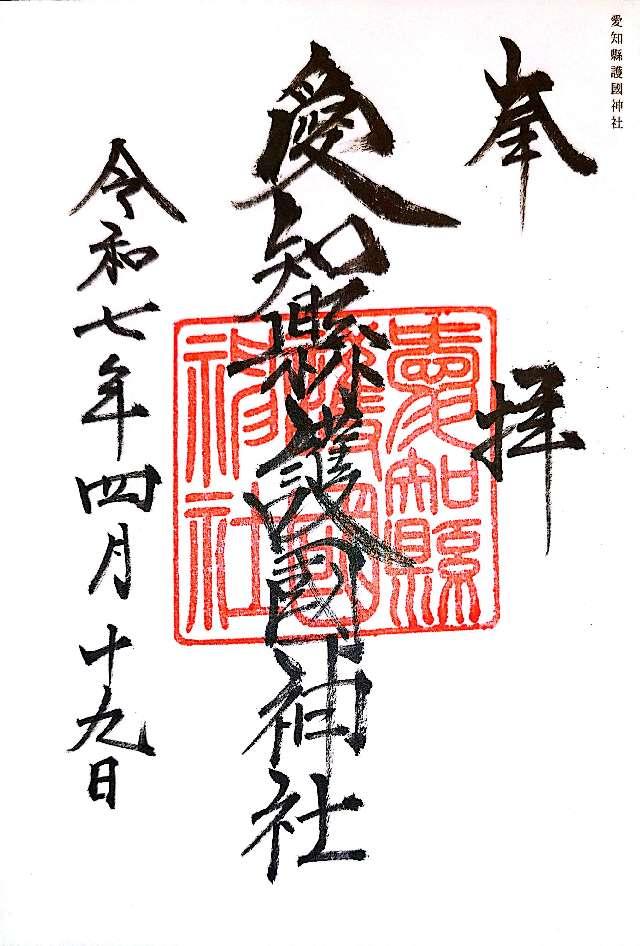 愛知縣護國神社
奉拝
愛知縣護國神社
愛知縣
護國
神社
令和七年四月十九日